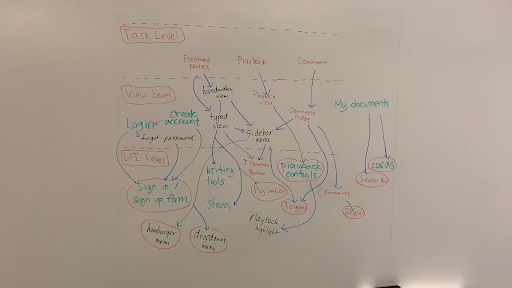 Task Level
Freehand
Notes
Playback
Comment
View Level
handwritten
view
Playback
view
Comment
Mode
My documents
Create
account
Login
typed
view
Sidebar
menu
forgot password
UI Level
Writing
tools
playback
controls
cards
Search Bar
Sign in /
sign up form
Comment
Staves
Toggle
playback
highlight
hamburger
menu
dropdown
menu